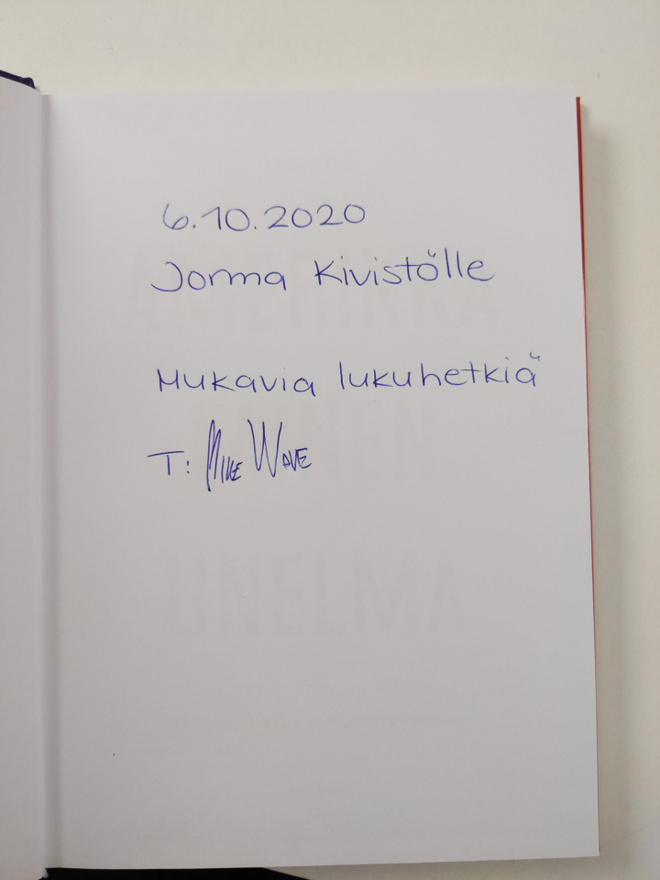 6.10.2020
Jorma Kivistölle
Mukavia lukuhetkiä
T: Mike Wave
UNELMA